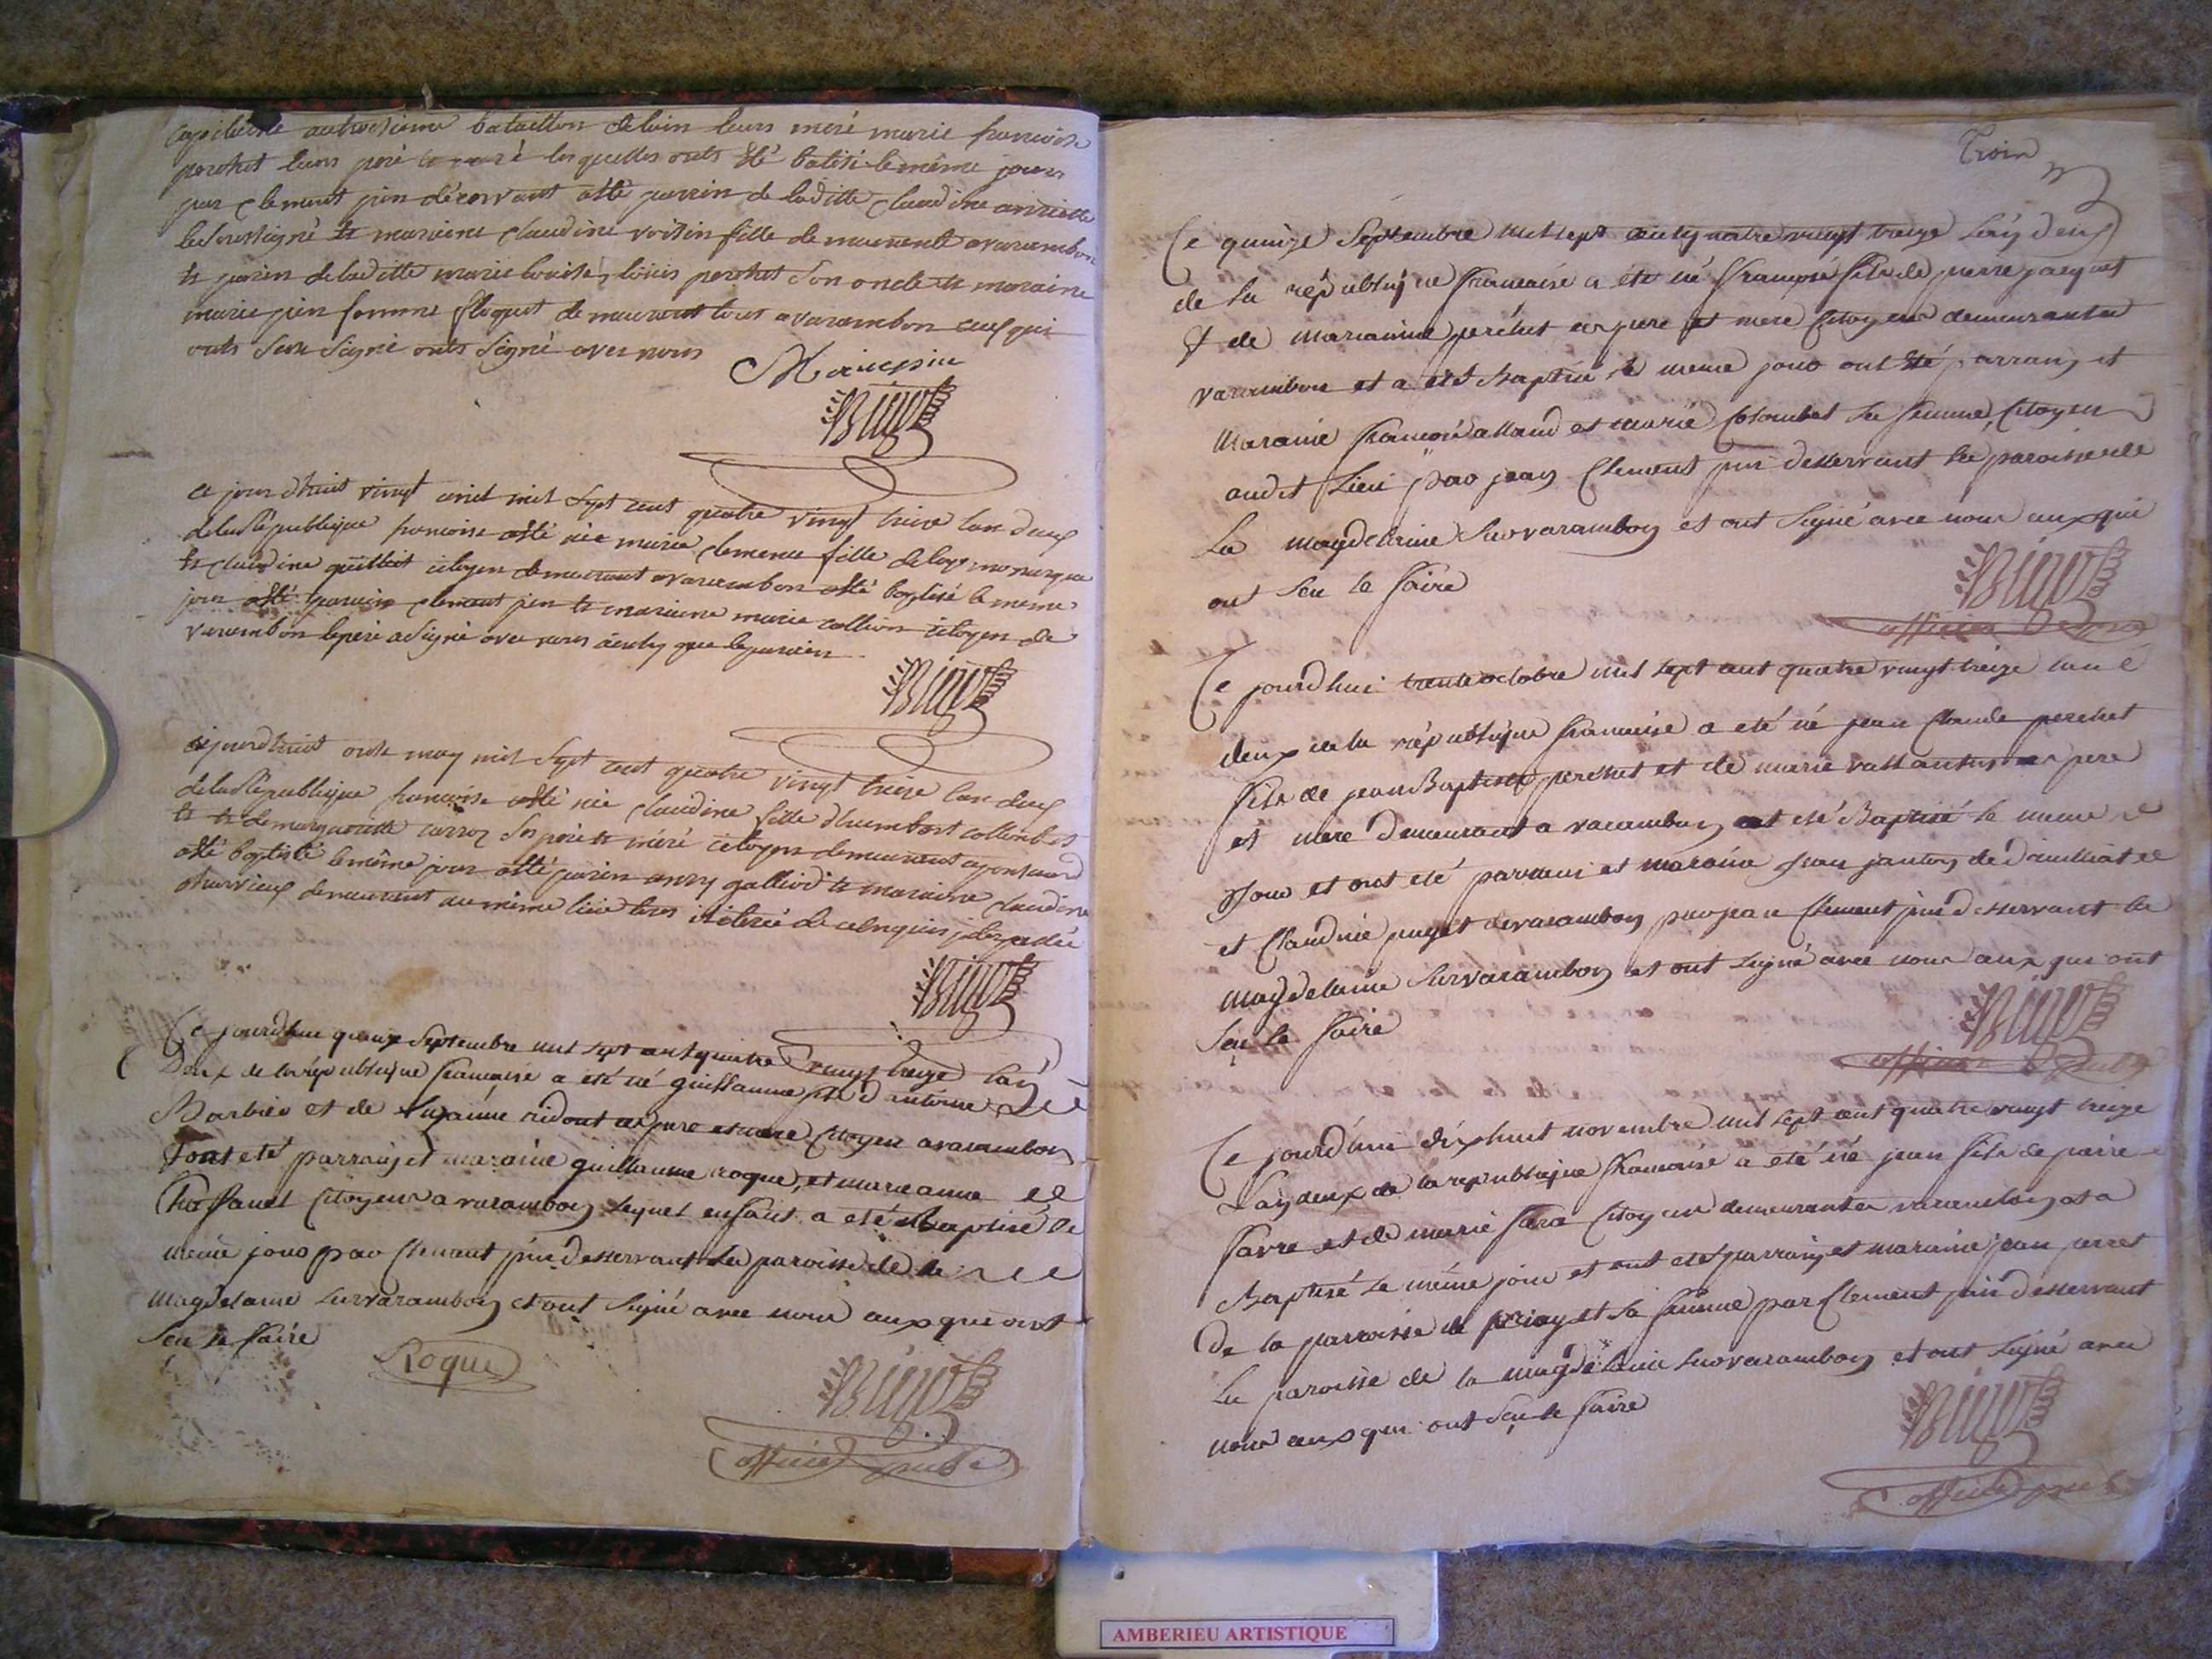 bataillon de lain leurs meré marie francoise
perchet leurs peré lesquelles onts été batisé le même jour
par clement pin décervant atté parrin de laditte claudine
le soussigné et maraine claudine voisin fille demeurente a varambon
et parin de laditte marie louise louis perchet son oncle et maraine
marie pin femme floquet demeurent tous a varambon ceux qui
onts seu signé onts signé avec nous
ce jour d'huit vingt avril mil sept cent quatre vingt treize lan deux
de la République francoise atté née marie clemence fille de
et claudine citoyen demeurant a varambon atté baptisé le meme
jour atté parain clement pin et maraine marie collion citoyen de
varambon le peré a signé avec nous que le parain
cejourdhuit onze may mil sept cent quatre vingt treize lan deux
de la République francoise atté née claudine fille d'humbert collombet
et de margueritte carroz ses peré et méré citoyen demeurant a
atté baptisé le même jour atté parin galliod et maraine claudine
demeurent au même lieu tous
Ce jourdhui quinze Septembre mil sept cent quatre vingt treize lan
Deux de la république francaise a été né guillaume fils d'antoine
Barbier et de Suzanne ridout ces pere et mere Citoyen a varambon
et ont été parrain et maraine guillaume roque, et marie anne
Citoyen a varambon lequel enfant a été Baptisé le
meme jour par Clement pin desservant la paroisse de la
magdelaine sur varambon et ont signé avec nous ceux qui ont
Seu le faire
Roque
officier public
Trois
Ce quinze Septembre mil sept cent quatre vingt treize lan deux
de la république francaise a été né francois fils de pierre jacquet
& de marianne perchet ces pere et mere Citoyens demeurant a
varambon et a été Baptisé le meme jour ont été parrain et
Maraine francois alland et marie Colombet sa femme, Citoyen
audit Lieu par jean Clement pin desservant la paroisse de
La magdelaine sur varambon et ont signé avec nous ceux qui
ont Seu le faire
officier public
Ce jourd'hui trente octobre mil sept cent quatre vingt treize lan
deux de la république francaise a été né jean Claude perchet
fils de jean Baptiste perchet et de marie ces pere
et mere demeurant a varambon et été Baptisé le meme
Jour et ont été parrain et maraine jean jantin de
et Claudine puget de varambon par jean Clement pin desservant la
magdelaine sur varambon et ont signé avec nous ceux qui ont
Seu le faire
officier public
Ce jourd'hui dix huit novembre mil sept cent quatre vingt treize
Lan deux de la république francaise a été né jean fils de pierre
favre et de marie Citoyen demeurant a varambon et a
Baptisé le même jour et ont été parrain et maraine jean perret
de la parroisse de priay et sa femme par Clement pin desservant
La paroisse de la magdelaine sur varambon et ont signé avec
nous ceux qui ont Seu le faire
officier public
AMBERIEU ARTISTIQUE